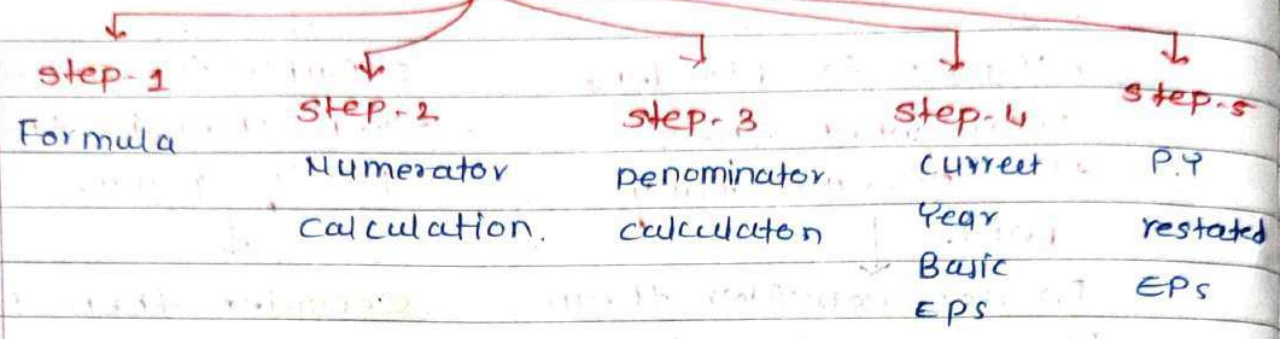 step-1
Formula
Step-2
Numerator
Calculation.
step-3
Denominator
calculaton
Step-4
Curreet
Year
Basic
EPS
step-5
P.Y
restated
EPS